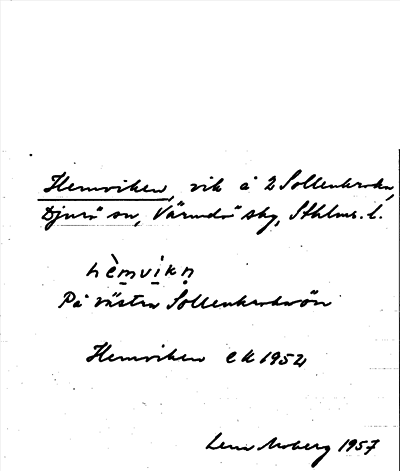 Hemviken, vik å 2 Sollenkroka,
Djurö sn, Värmdö skg, Sthlms. l.
hèmvikn
På västra Sollenkrokaön
Hemviken ek 1952
Lena Moberg 1957